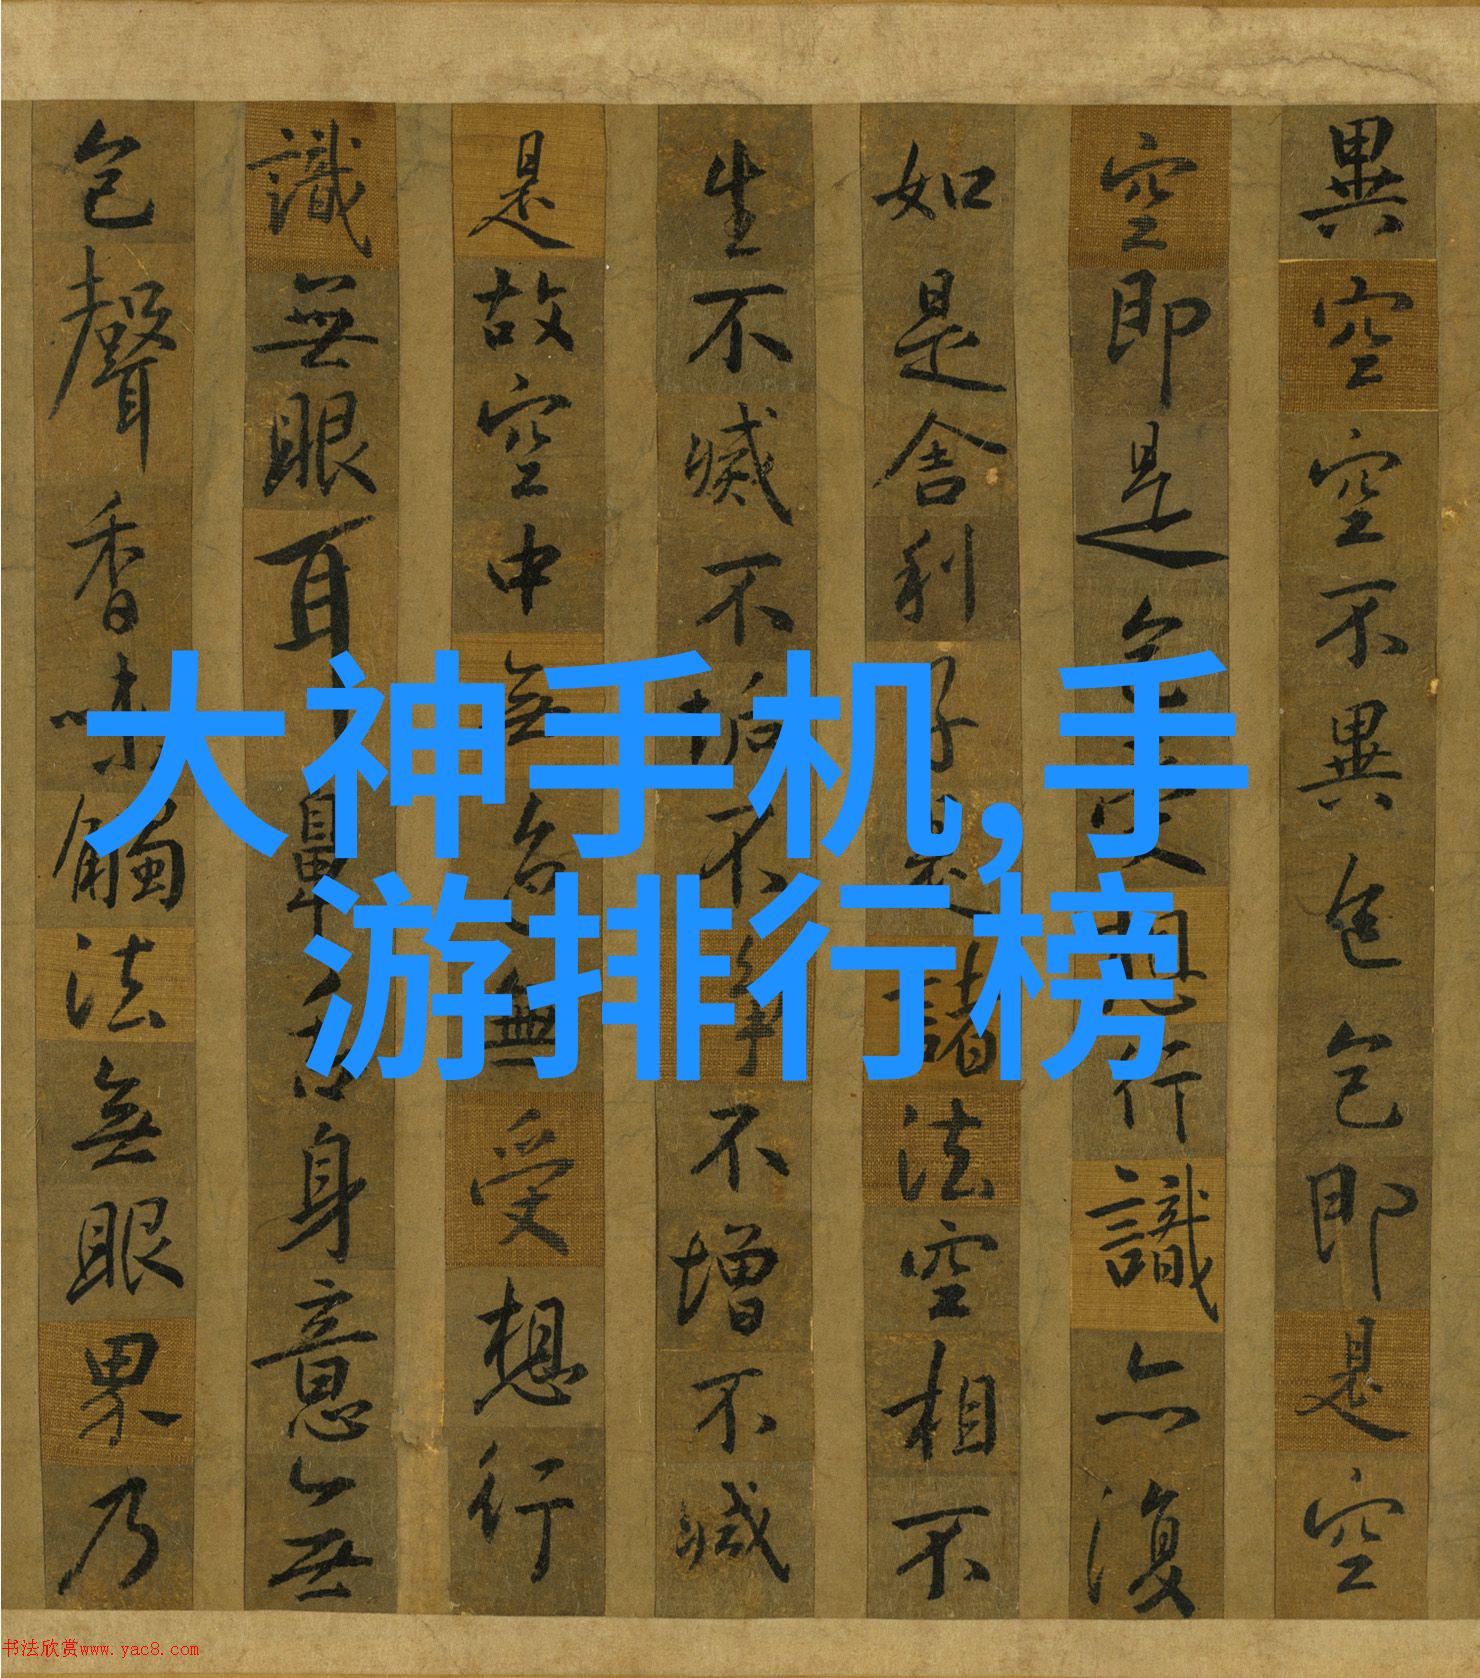 異空空不異色色即是空
空即是色受想行識亦復
如是舍利子是諸法空相不
生不滅不垢不淨不增不減
是故空中無色無受想行
識無眼耳鼻舌身意無
色聲香味觸法無眼界乃
大神手机,手
游排行榜
书法欣赏www.yac8.com